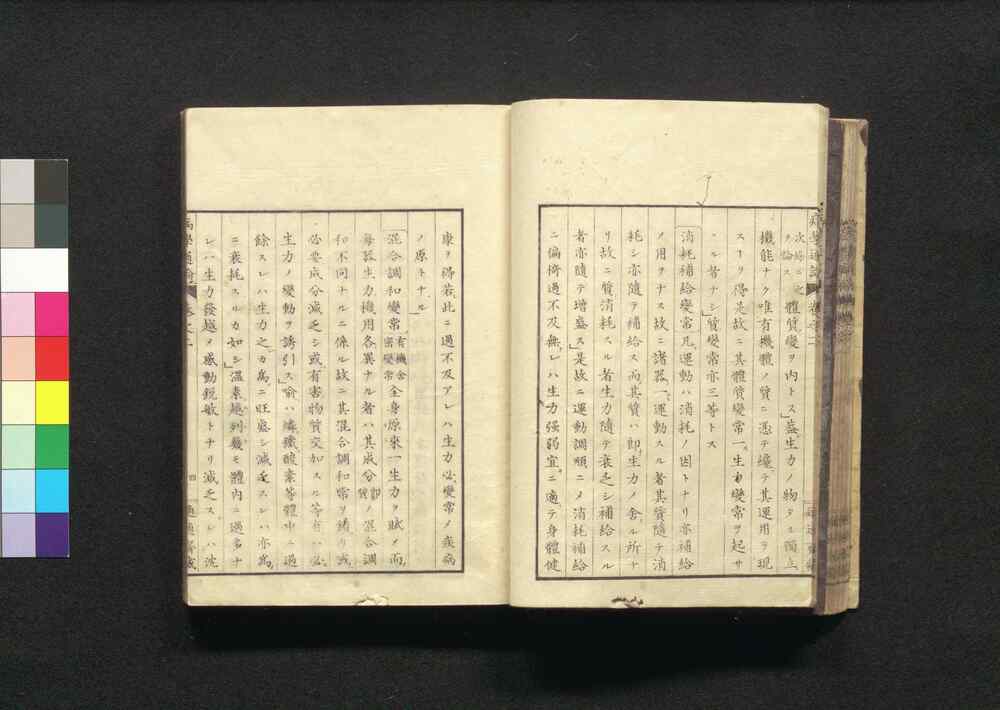 體質變ヲ內トス」蓋生力ノ物タル獨立
機能ナク唯有機體ノ質ニ憑テ纔ニ其運用ヲ現
スヿヲ得是故ニ其體質變常一生力變常ヲ起サ
ル者ナシ」質變常亦三等トス
消耗補給變常凡運動ハ消耗ノ因トナリ亦補給
ノ用ヲナス故ニ諸器一運動スル者其質隨テ消
耗シ亦隨テ補給ス而其質ハ即生力ノ舍ル所ナ
リ故ニ質消耗スル者生力隨テ衰乏シ補給スル
者亦隨テ增盛ス」是故ニ運動調順ニメ消耗補給
ニ偏倚過不及無レハ生力强弱宜ニ適テ身體健
康ヲ得若此ニ過不及アレハ生力必變常メ疾病
ノ原トナル」
混合調和變常有機舍密變常全身原來一生力ヲ賦メ而
每器生力機用各異ナル者ハ其成分ノ混合調
和不同ナルニ係ル故ニ其混合調和常ヲ錯リ或
必要成分減乏シ或有害物質交加スル等有ハ必
生力ノ變動ヲ誘引ス喻ハ燐殲酸素等體中ニ過
餘スレハ生力之カ爲ニ旺盛シ減乏スレハ亦爲
ニ衰耗スルカ如シ」溫素越列幾モ體內ニ過多ナ
レハ生力發越メ感動銳敏トナリ減乏スレハ沈
四